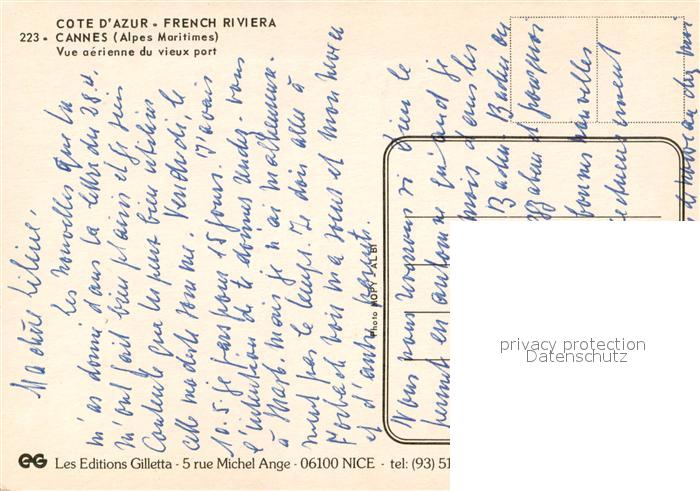 COTE D'AZUR - FRENCH RIVIERA
223 - CANNES (Alpes Maritimes)
Vue aérienne du vieux port
Ma chère Liline,
les nouvelles que tu
m'as donné dans ta lettre du 28.4.
m'ont fait bien plaisir et je suis
contente que tu peux bien utiliser
cette modeste somme. Vendredi, le
10.5. je pars pour 15 jours. J'avais
l'intention de te donner rendez-vous
à mais je n'ai malheureuse-
ment pas le temps. Je dois aller à
Forbach voir ma soeur et mon neveu
et d'autres parents.
Nous nous si bien le
permet en automne quand je
mois dans les
Baden-Baden ou
et pourquoi
bonnes nouvelles
Photo MOPY - ALBI
privacy protection
Datenschutz
eG Les Editions Gilletta - 5 rue Michel Ange - 06100 NICE - tel: (93) 51